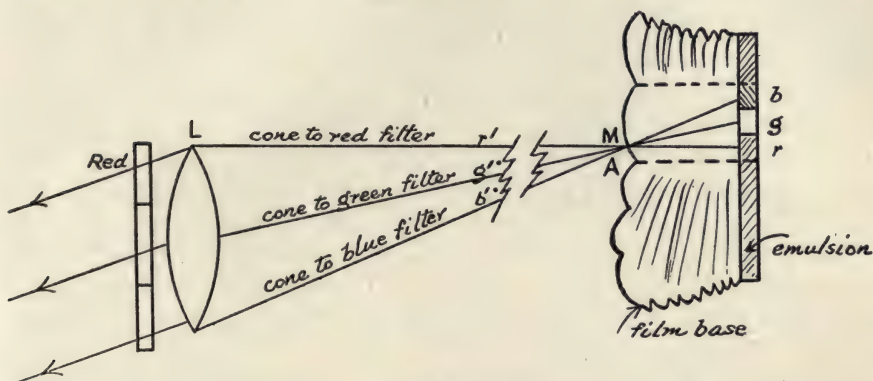 L
Red
cone to red filter
r'
g''
b''
cone to green filter
cone to blue filter
M
A
b
g
r
emulsion
film base